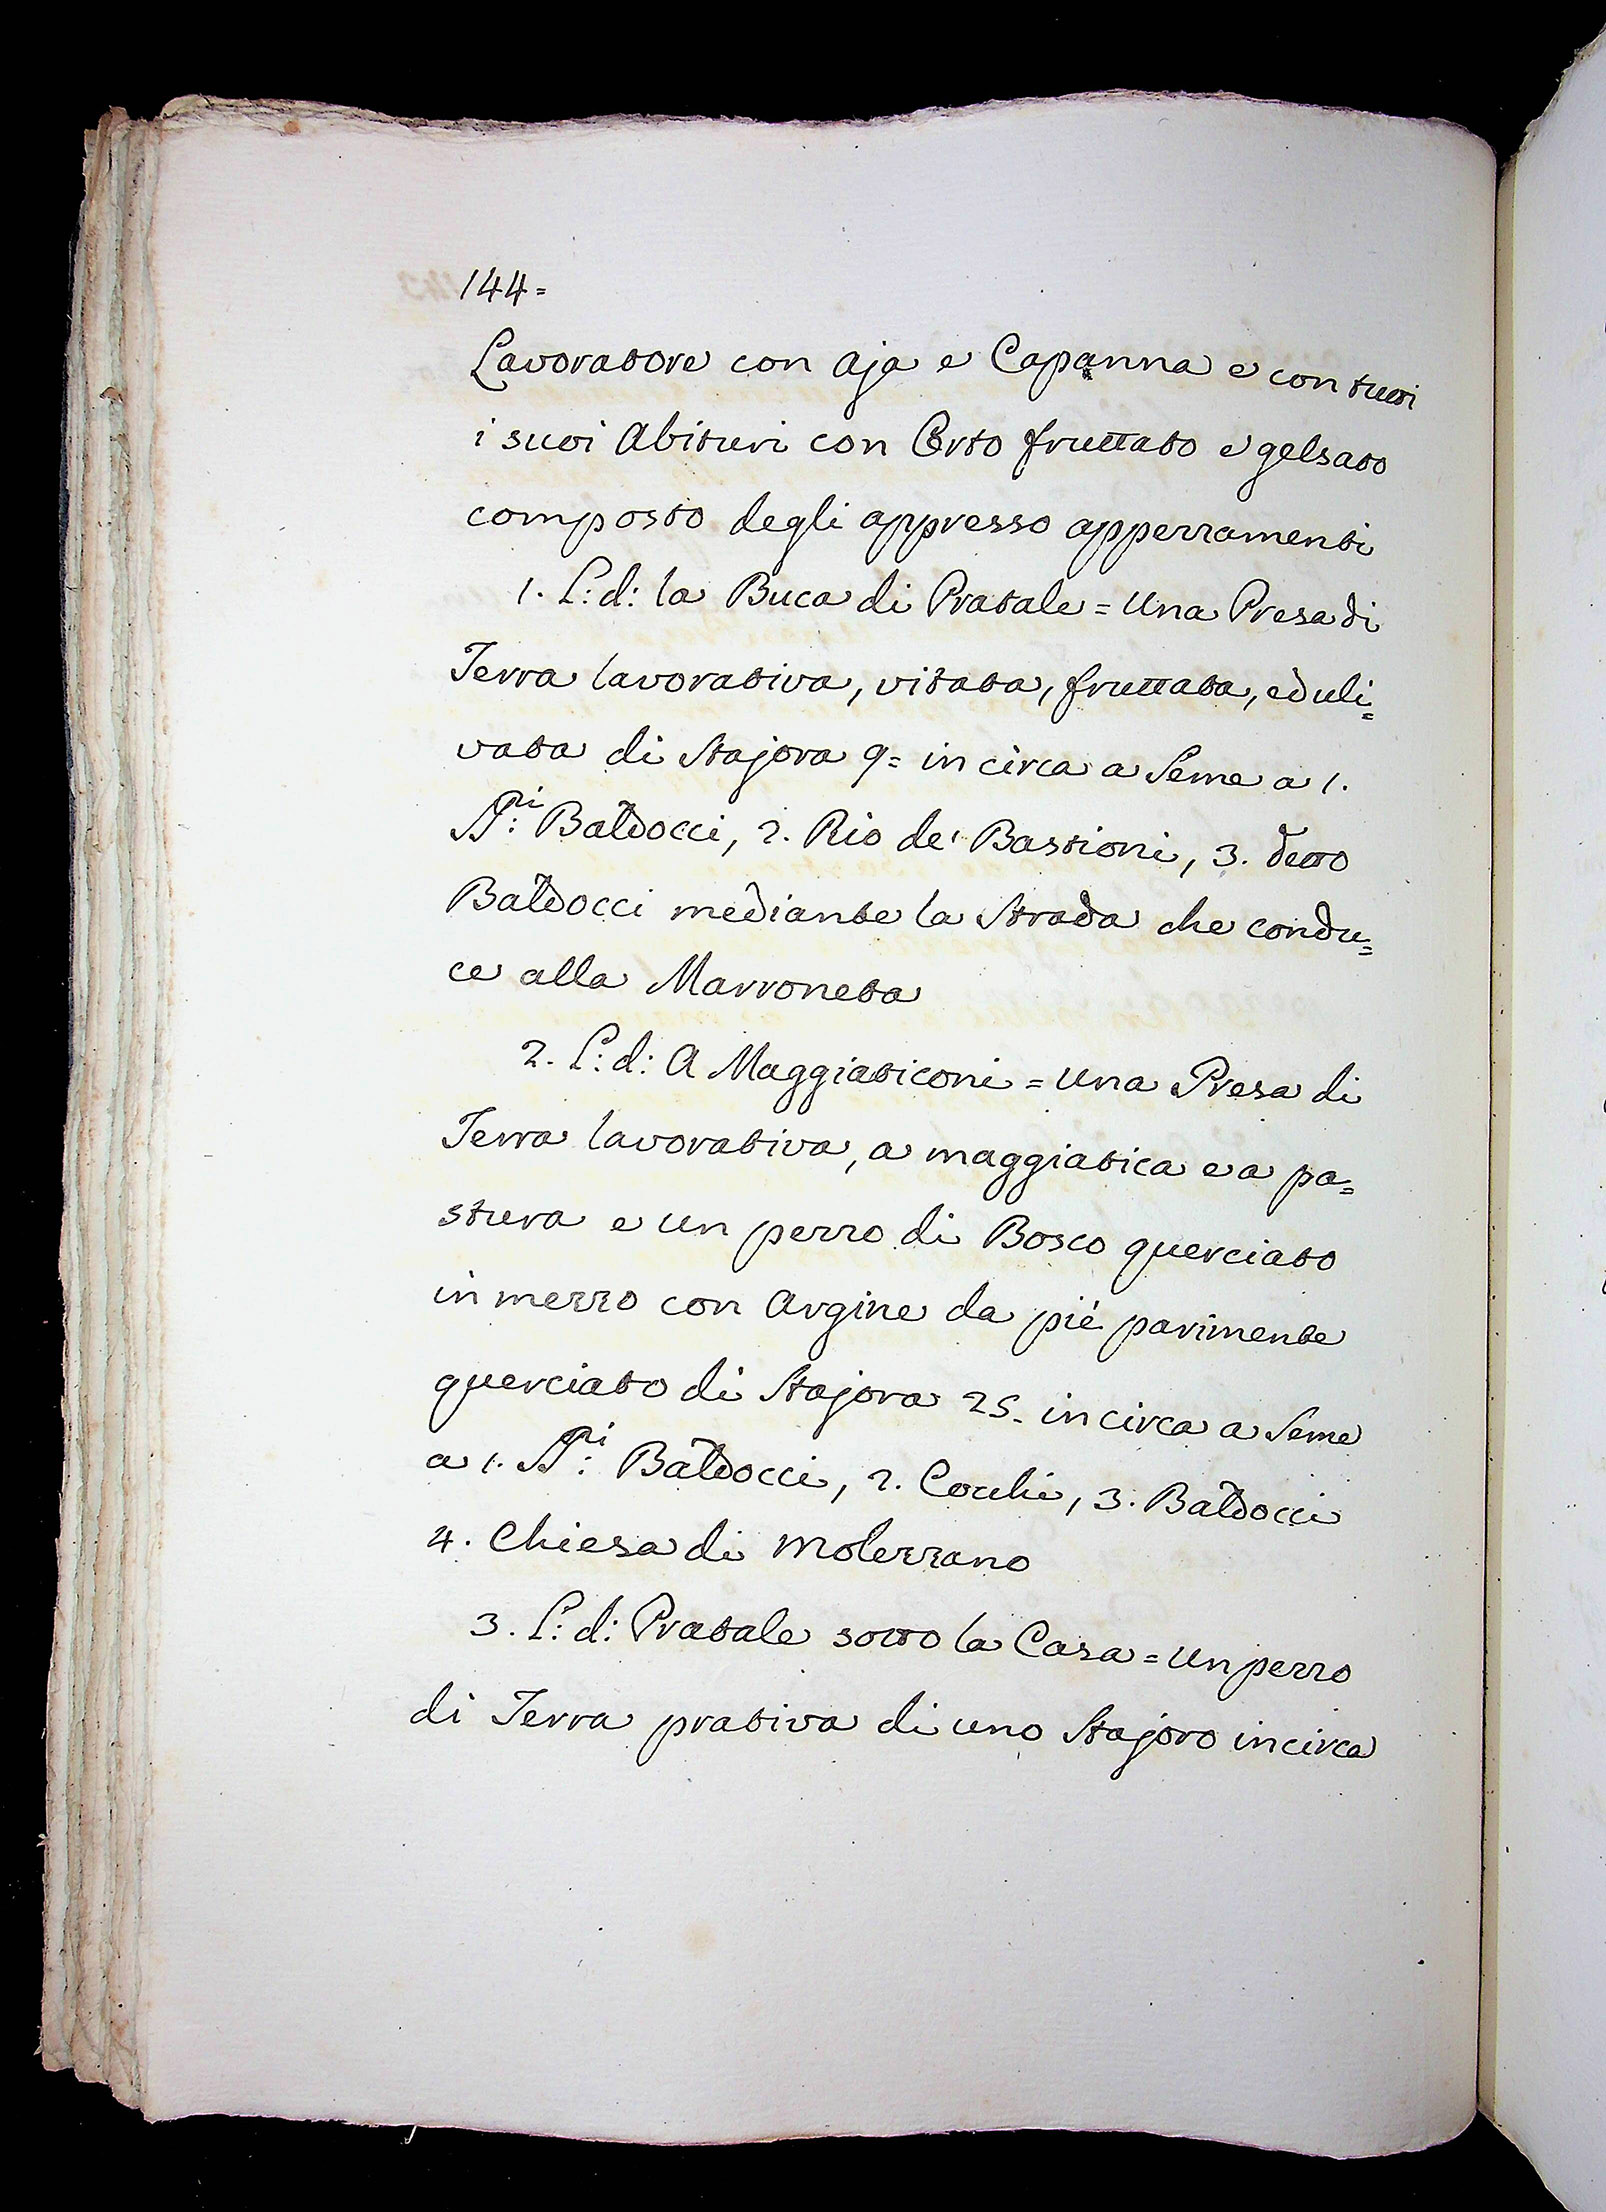 144=
Lavoratore con aja e Capanna e con tutti
i suoi Abituri con Orto fruttato e gelsato
composto degli appresso appezzamenti
1. L: d: la Buca di Pratale = Una Presa di
Terra lavorativa, vitata, fruttata, ed uli=
vata di Stajora 9= in circa a Seme a 1.
Baldocci, 2. Rio de' Bastioni, 3. detto
Baldocci mediante la Strada che condu=
ce alla Marroneta
2. L: d: A Maggiaticoni = Una Presa di
Terra lavorativa, a maggiatica e a pa=
stura e un pezzo di Bosco querciato
in mezzo con Argine da piè parimente
querciato di Stajora 25. in circa a Seme
a 1. Baldocci, 2. Cocchi, 3. Baldocci
4. Chiesa di Molezzano
3. L: d: Pratale sotto la Casa = Un pezzo
di Terra prativa di uno Stajoro in circa